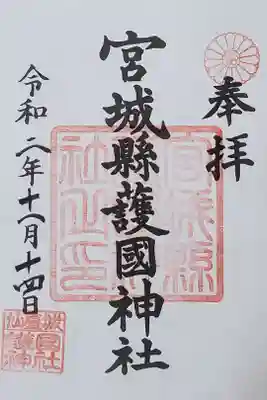 奉拝
宮城縣護國神社
令和二年十一月十四日